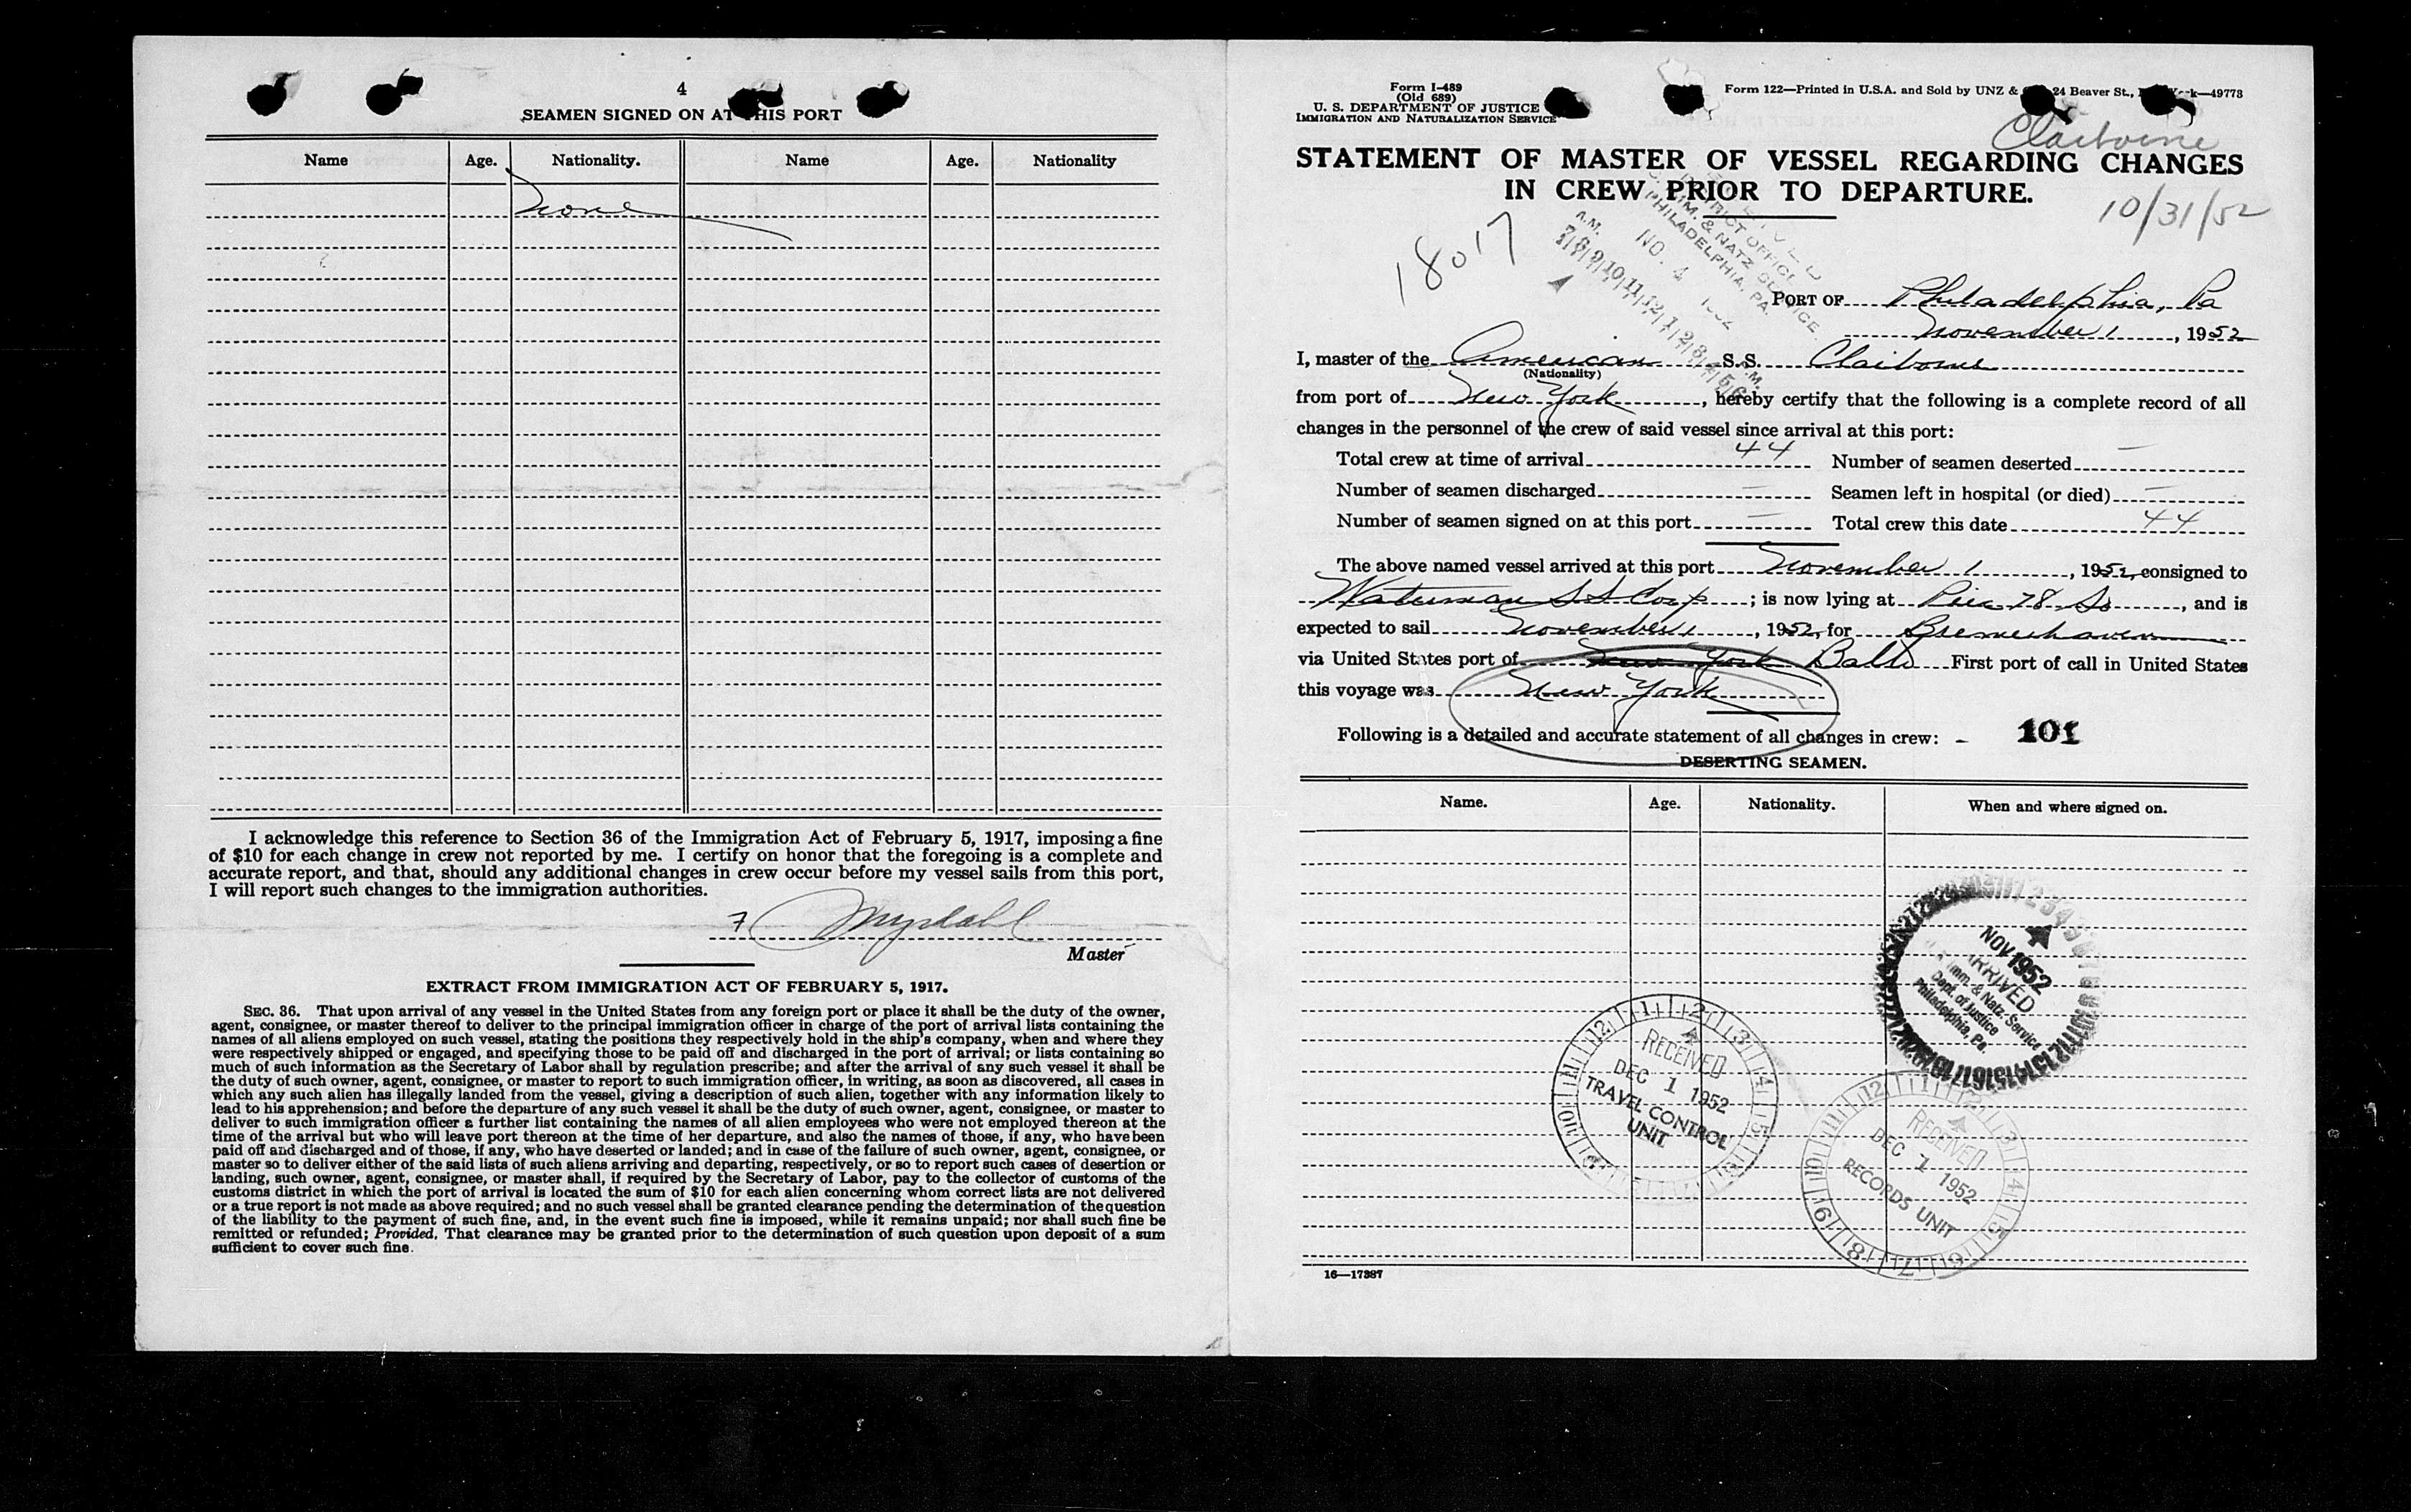 4
SEAMEN SIGNED ON AT THIS PORT
Name Age. Nationality. Name Age. Nationality
None
I acknowledge this reference to Section 36 of the Immigration Act of February 5, 1917, imposing a fine
of $10 for each change in crew not reported by me. I certify on honor that the foregoing is a complete and
accurate report, and that, should any additional changes in crew occur before my vessel sails from this port,
I will report such changes to the immigration authorities.
Master
EXTRACT FROM IMMIGRATION ACT OF FEBRUARY 5, 1917.
SEC. 36. That upon arrival of any vessel in the United States from any foreign port or place it shall be the duty of the owner,
agent, consignee, or master thereof to deliver to the principal immigration officer in charge of the port of arrival lists containing the
names of all aliens employed on such vessel, stating the positions they respectively hold in the ship's company, when and where they
were respectively shipped or engaged, and specifying those to be paid off and discharged in the port of arrival; or lists containing so
much of such information as the Secretary of Labor shall by regulation prescribe; and after the arrival of any such vessel it shall be
the duty of such owner, agent, consignee, or master to report to such immigration officer, in writing, as soon as discovered, all cases in
which any such alien has illegally landed from the vessel, giving a description of such alien, together with any information likely to
lead to his apprehension; and before the departure of any such vessel it shall be the duty of such owner, agent, consignee, or master to
deliver to such immigration officer a further list containing the names of all alien employees who were not employed thereon at the
time of the arrival but who will leave port thereon at the time of her departure, and also the names of those, if any, who have been
paid off and discharged and of those, if any, who have deserted or landed; and in case of the failure of such owner, agent, consignee, or
master so to deliver either of the said lists of such aliens arriving and departing, respectively, or so to report such cases of desertion or
landing, such owner, agent, consignee, or master shall, if required by the Secretary of Labor, pay to the collector of customs of the
customs district in which the port of arrival is located the sum of $10 for each alien concerning whom correct lists are not delivered
or a true report is not made as above required; and no such vessel shall be granted clearance pending the determination of the question
of the liability to the payment of such fine, and, in the event such fine is imposed, while it remains unpaid; nor shall such fine be
remitted or refunded; Provided, That clearance may be granted prior to the determination of such question upon deposit of a sum
sufficient to cover such fine.
Form I-489
(Old 689)
U. S. DEPARTMENT OF JUSTICE
IMMIGRATION AND NATURALIZATION SERVICE
Form 122—Printed in U.S.A. and Sold by UNZ & 24 Beaver St., —49773
Claiborne
STATEMENT OF MASTER OF VESSEL REGARDING CHANGES
IN CREW PRIOR TO DEPARTURE.
10/31/52
18017
DISTRICT OFFICE
IMM. & NATZ SERVICE
PHILADELPHIA, PA.
NO. 4 1952
A.M.
PORT OF Philadelphia, Pa
November 1, 1952
I, master of the American S.S. Claiborne
(Nationality)
from port of New York, hereby certify that the following is a complete record of all
changes in the personnel of the crew of said vessel since arrival at this port:
Total crew at time of arrival 44 Number of seamen deserted —
Number of seamen discharged — Seamen left in hospital (or died) —
Number of seamen signed on at this port — Total crew this date 44
The above named vessel arrived at this port November 1, 1952, consigned to
Waterman S S Corp; is now lying at Pier 78 So, and is
expected to sail November 1, 1952, for Bremerhaven
via United States port of New York Balto First port of call in United States
this voyage was New York
Following is a detailed and accurate statement of all changes in crew: - 101
DESERTING SEAMEN.
Name. Age. Nationality. When and where signed on.
NOV 1952
ARRIVED
Imm. & Natz. Service
Dept. of Justice
Philadelphia, Pa.
RECEIVED
DEC 1 1952
TRAVEL CONTROL
UNIT
RECEIVED
DEC 1 1952
RECORDS UNIT
16—17387